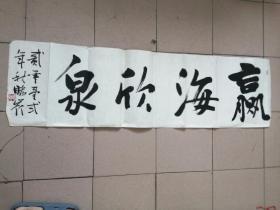 赢海欣泉
贰零壹弍
年秋